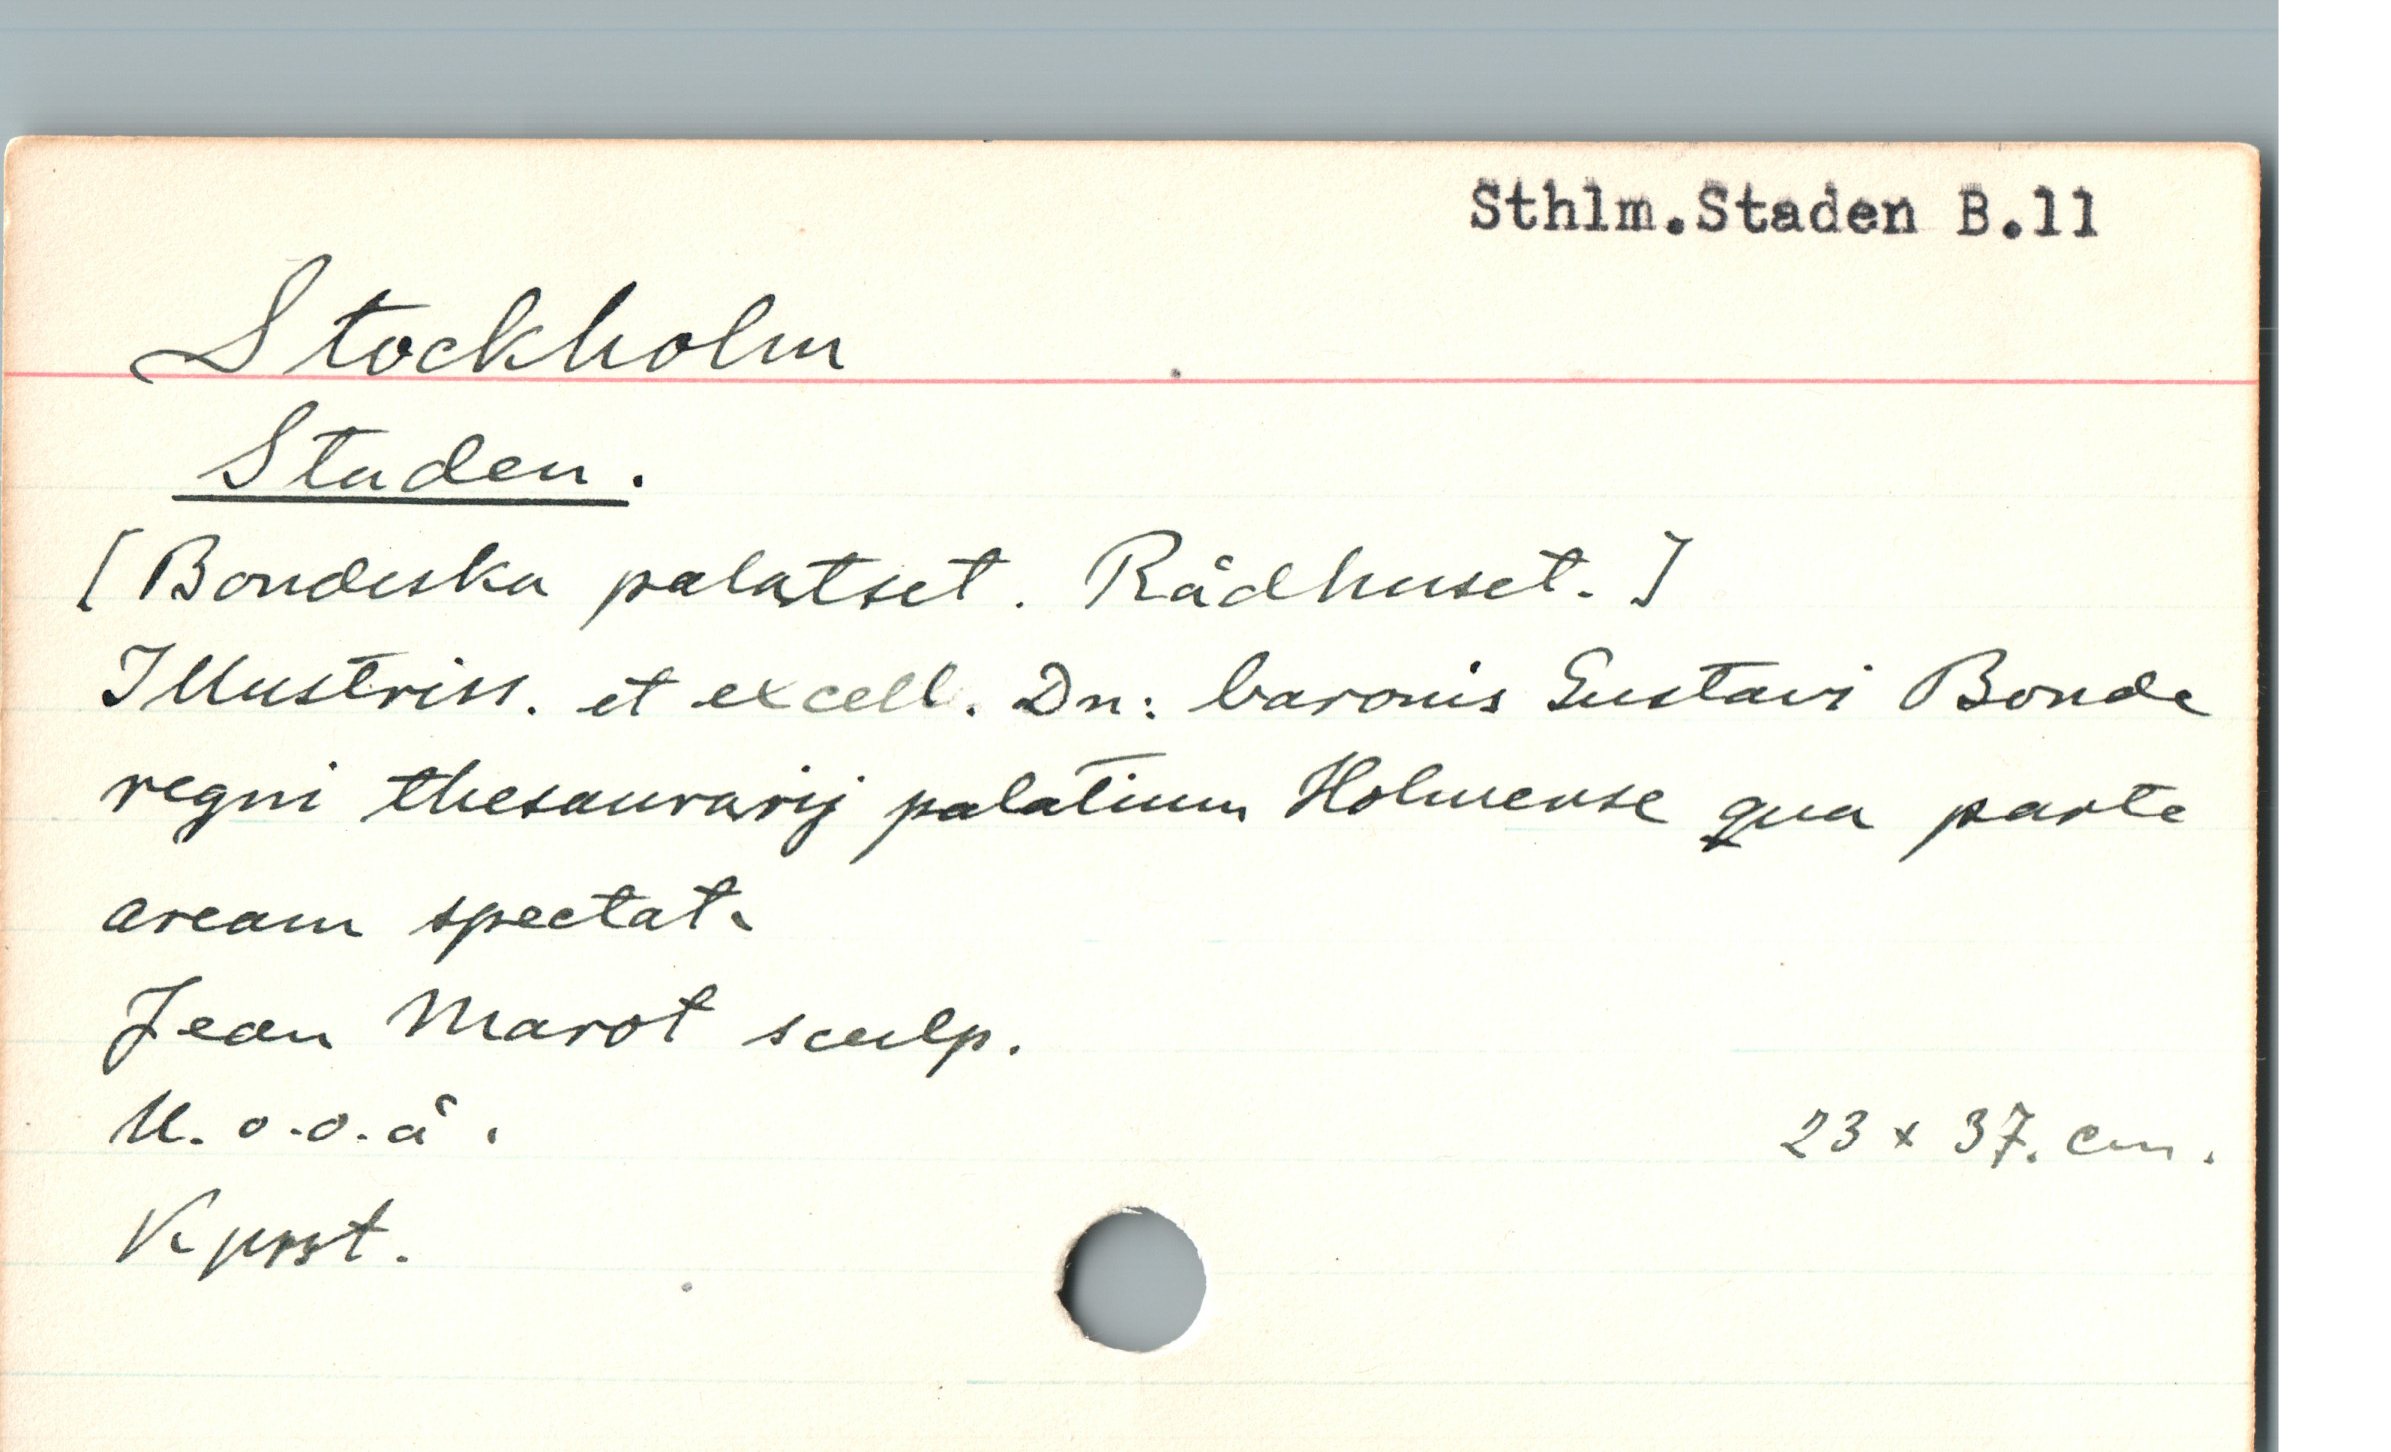 Sthlm.Staden B.11
Stockholm
Staden.
[Bondeska palatset. Rådhuset.]
Illustriss. et excell. Dn: baronis Gustavi Bonde
regni thesaurarij palatium Holmense qua parte
aream spectat.
Jean Marot sculp.
U.o.o.å.
23 x 37. cm.
Kprst.